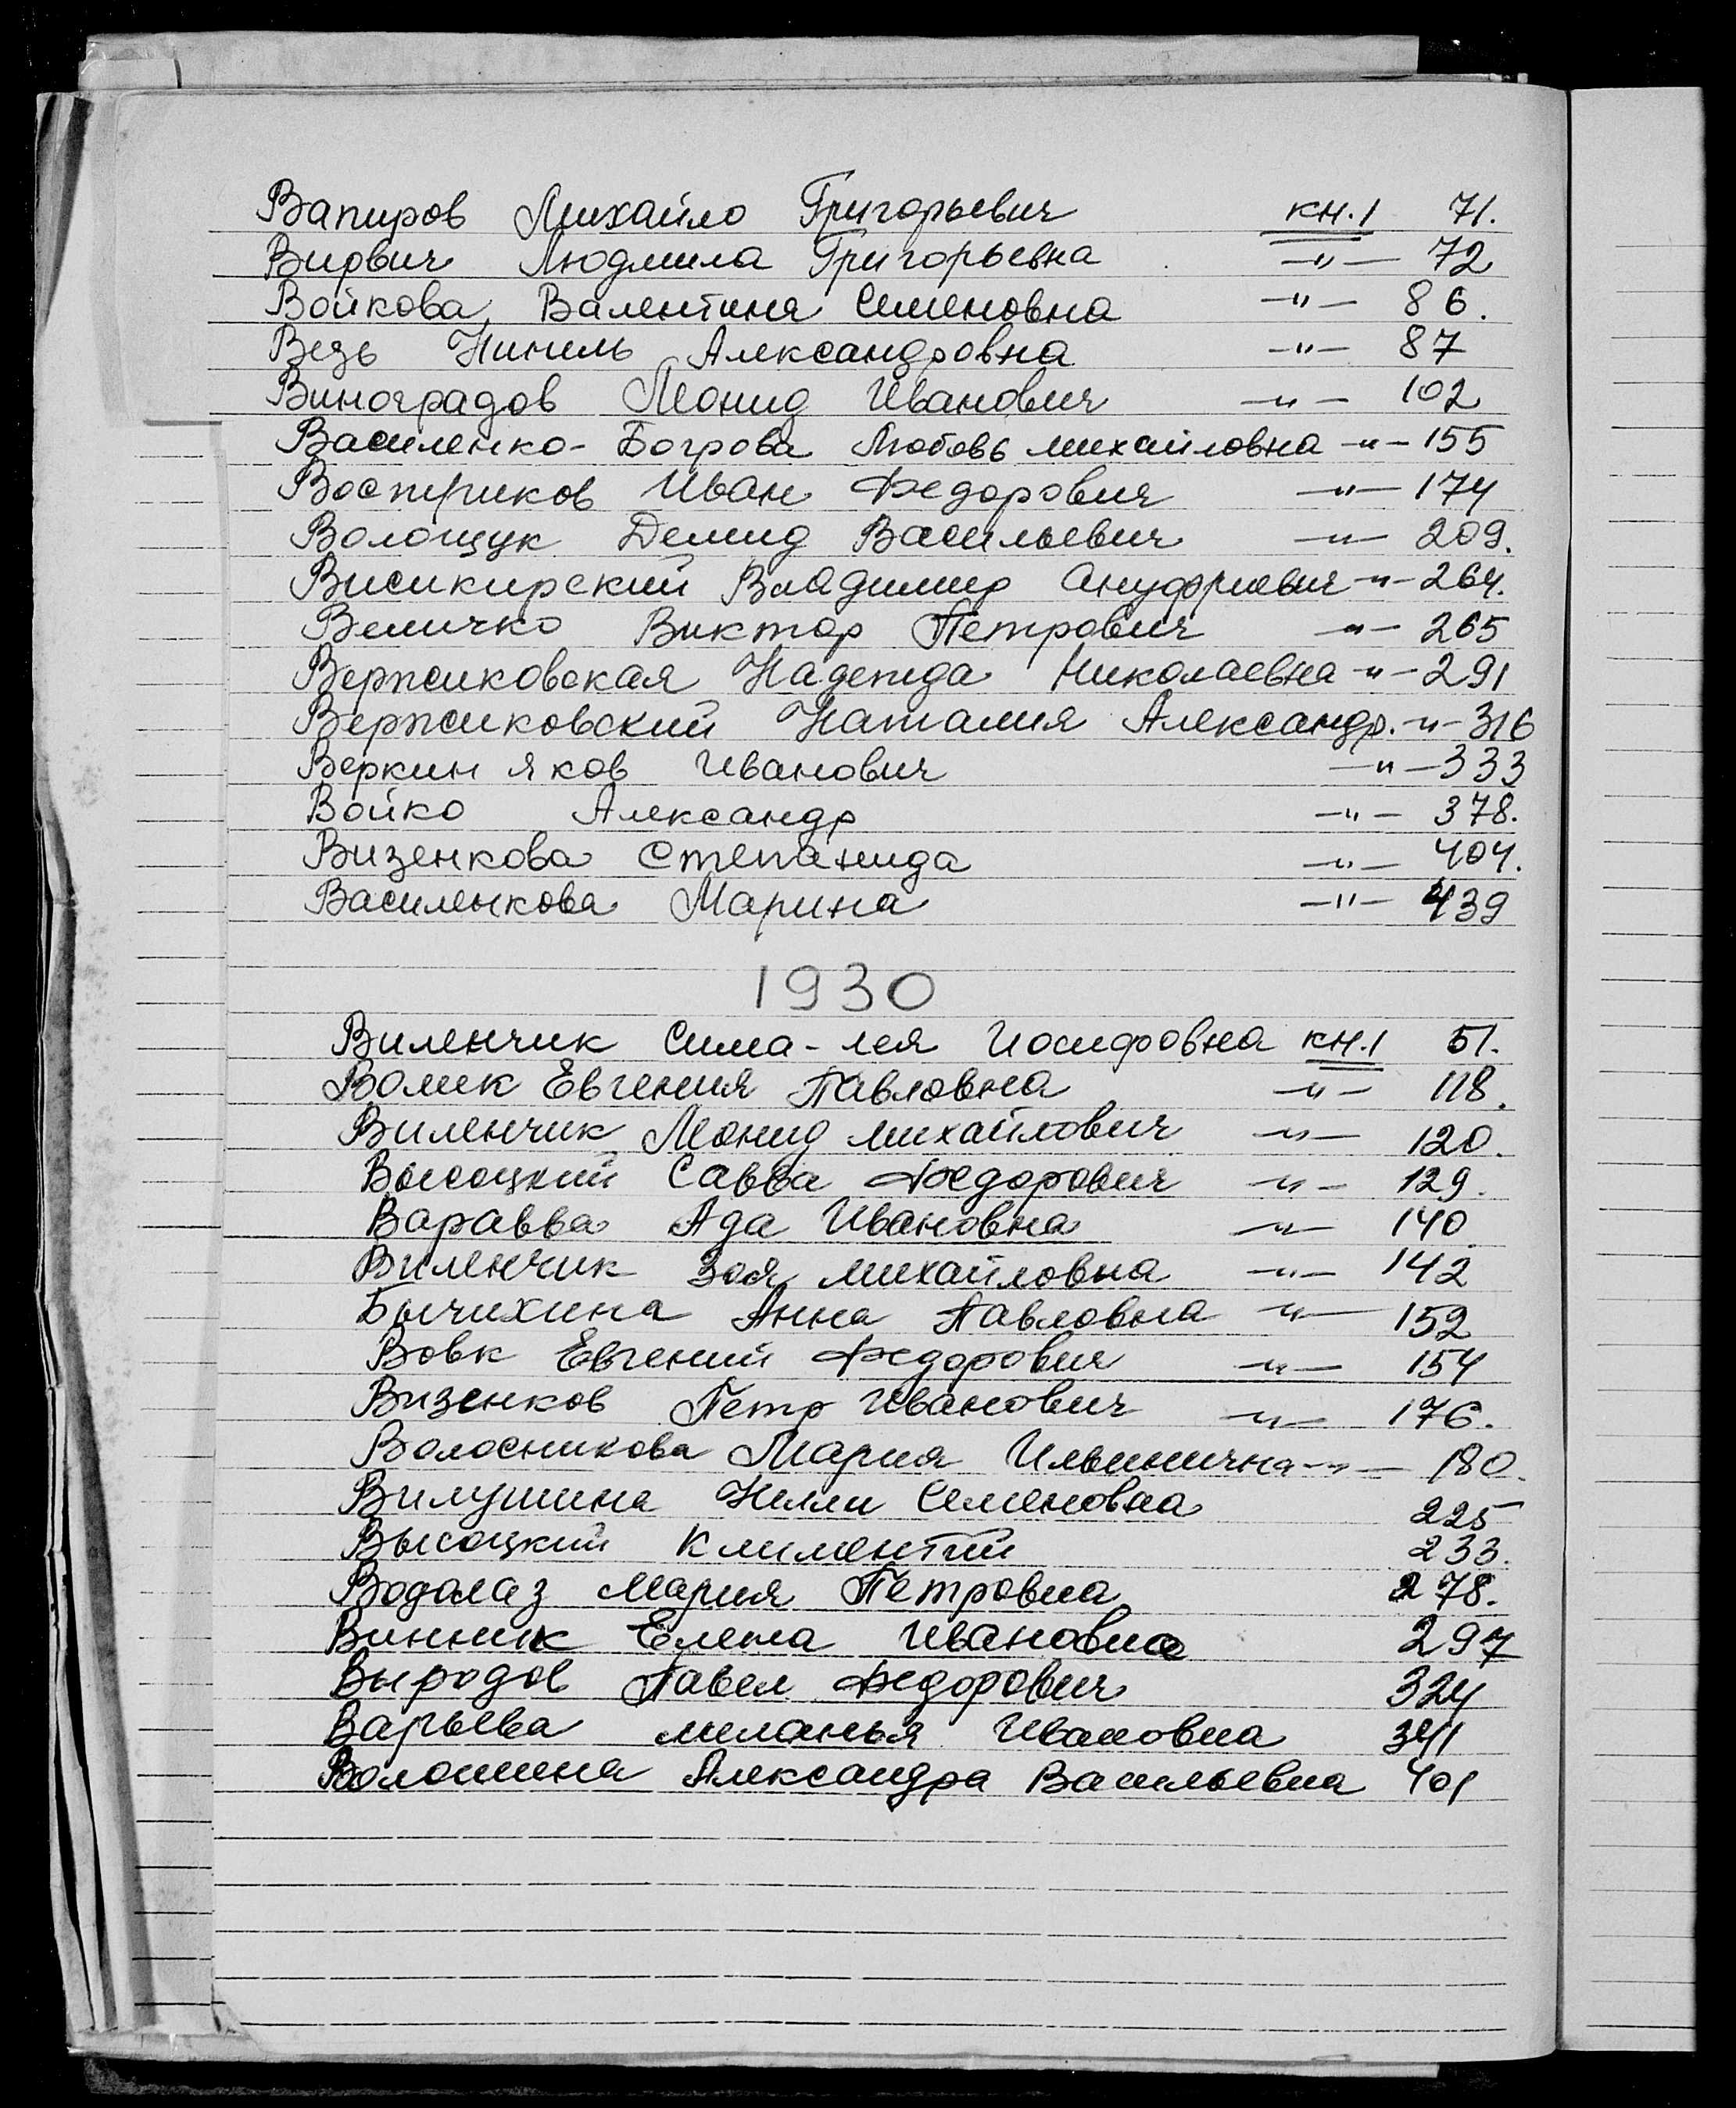 Вапиров Михайло Григорьевич кн.1 71.
Вирвич Людмила Григорьевна -"- 72
Войкова Валентина Семеновна -"- 86.
Везь Нинель Александровна -"- 87
Виноградов Леонид Иванович -"- 102
Василенко-Богрова Любовь михайловна -"- 155
Востриков Иван Федорович -"- 174
Волощук Демид Васильевич -"- 209.
Висикирский Владимир Ануфриевич -"- 264.
Величко Виктор Петрович -"- 265
Вержиковская Надежда Николаевна -"- 291
Вержиковский Наталия Александр. -"- 316
Веркин Яков Иванович -"- 333
Войко Александр -"- 378.
Визенкова Степанида -"- 404.
Василенкова Марина -"- 439
1930
Виленчик Сима-лея Иосифовна кн.1 51.
Волик Евгения Павловна -"- 118.
Виленчик Леонид михайлович -"- 120.
Высоцкий Савва Федорович -"- 129.
Варавва Ада Ивановна -"- 140.
Виленчик Зоя михайловна -"- 142
Бычихина Анна Павловна -"- 152
Вовк Евгений Федорович -"- 154
Визенков Петр Иванович -"- 176.
Волосникова Мария Ильинична -"- 180.
Вилушина Нилли Семеновна 225
Высоцкий Климентий 233.
Водолаз Мария Петровна 278.
Винник Елена Ивановна 297
Выродов Павел Федорович 324
Варьева меланья Ивановна 341
Волошина Александра Васильевна 401